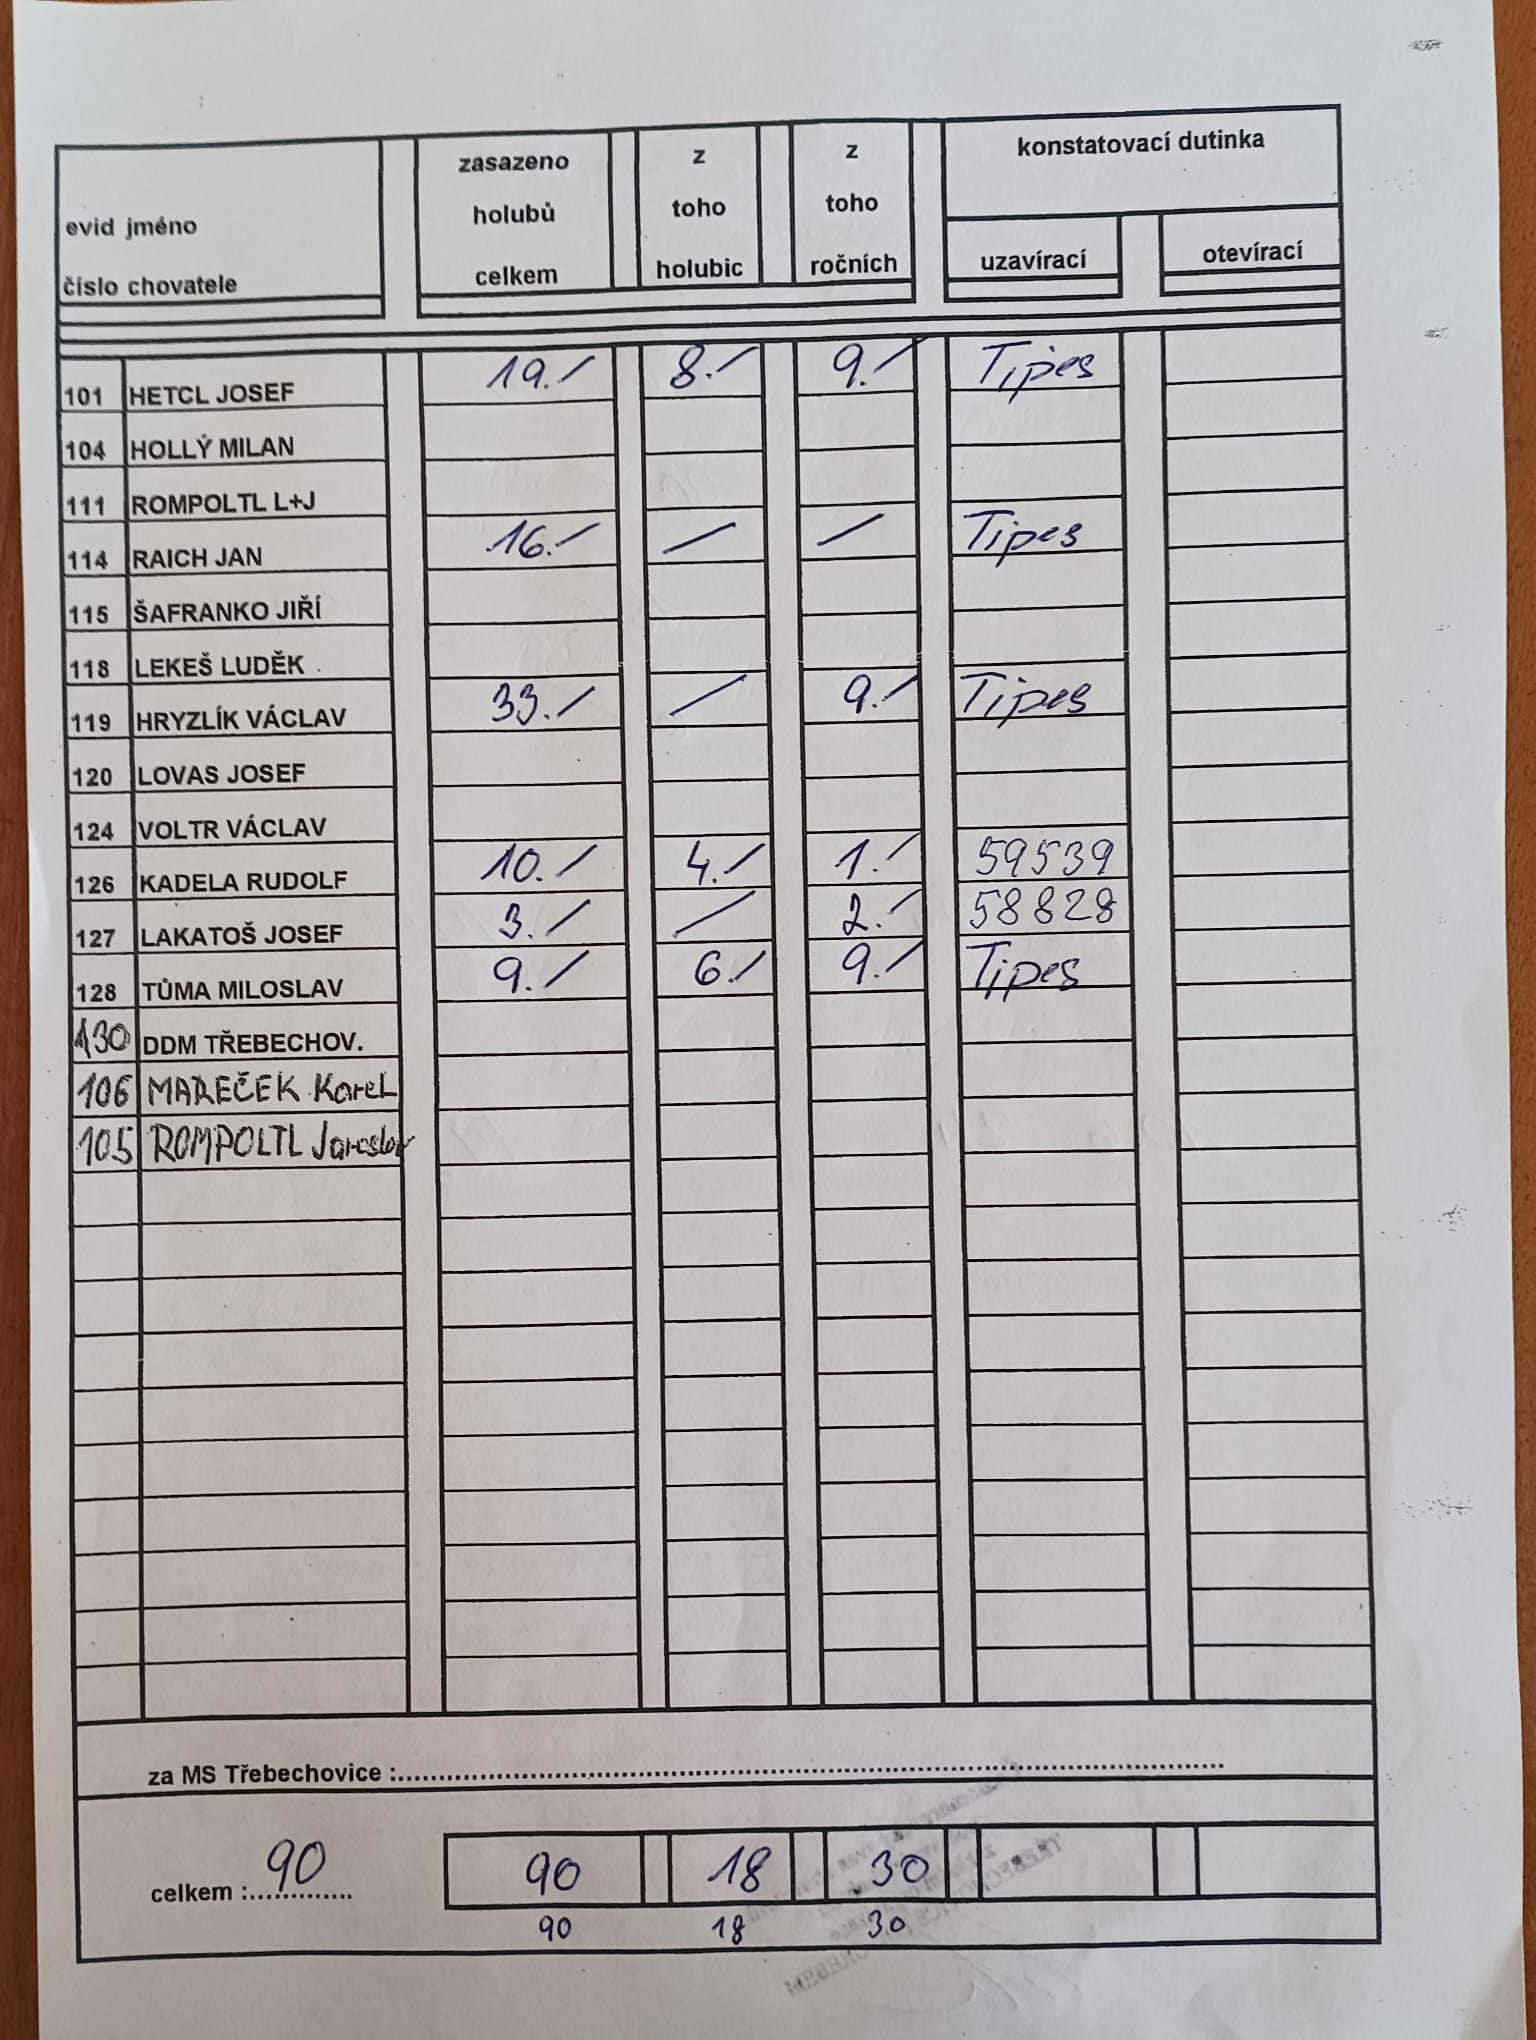 konstatovací dutinka
zasazeno z z
holubů toho toho
evid jméno
celkem holubic ročních uzavírací otevírací
číslo chovatele
101 HETCL JOSEF 19.⁄ 8.⁄ 9.⁄ Tipes
104 HOLLÝ MILAN
111 ROMPOLTL L+J
114 RAICH JAN 16.⁄ ⁄ ⁄ Tipes
115 ŠAFRANKO JIŘÍ
118 LEKEŠ LUDĚK
119 HRYZLÍK VÁCLAV 33.⁄ ⁄ 9.⁄ Tipes
120 LOVAS JOSEF
124 VOLTR VÁCLAV
126 KADELA RUDOLF 10.⁄ 4.⁄ 1.⁄ 59539
127 LAKATOŠ JOSEF 3.⁄ ⁄ 2.⁄ 58828
128 TŮMA MILOSLAV 9.⁄ 6.⁄ 9.⁄ Tipes
130 DDM TŘEBECHOV.
106 MAREČEK Karel
105 ROMPOLTL Jaroslav
za MS Třebechovice :....................
celkem :90 90 18 30
90 18 30